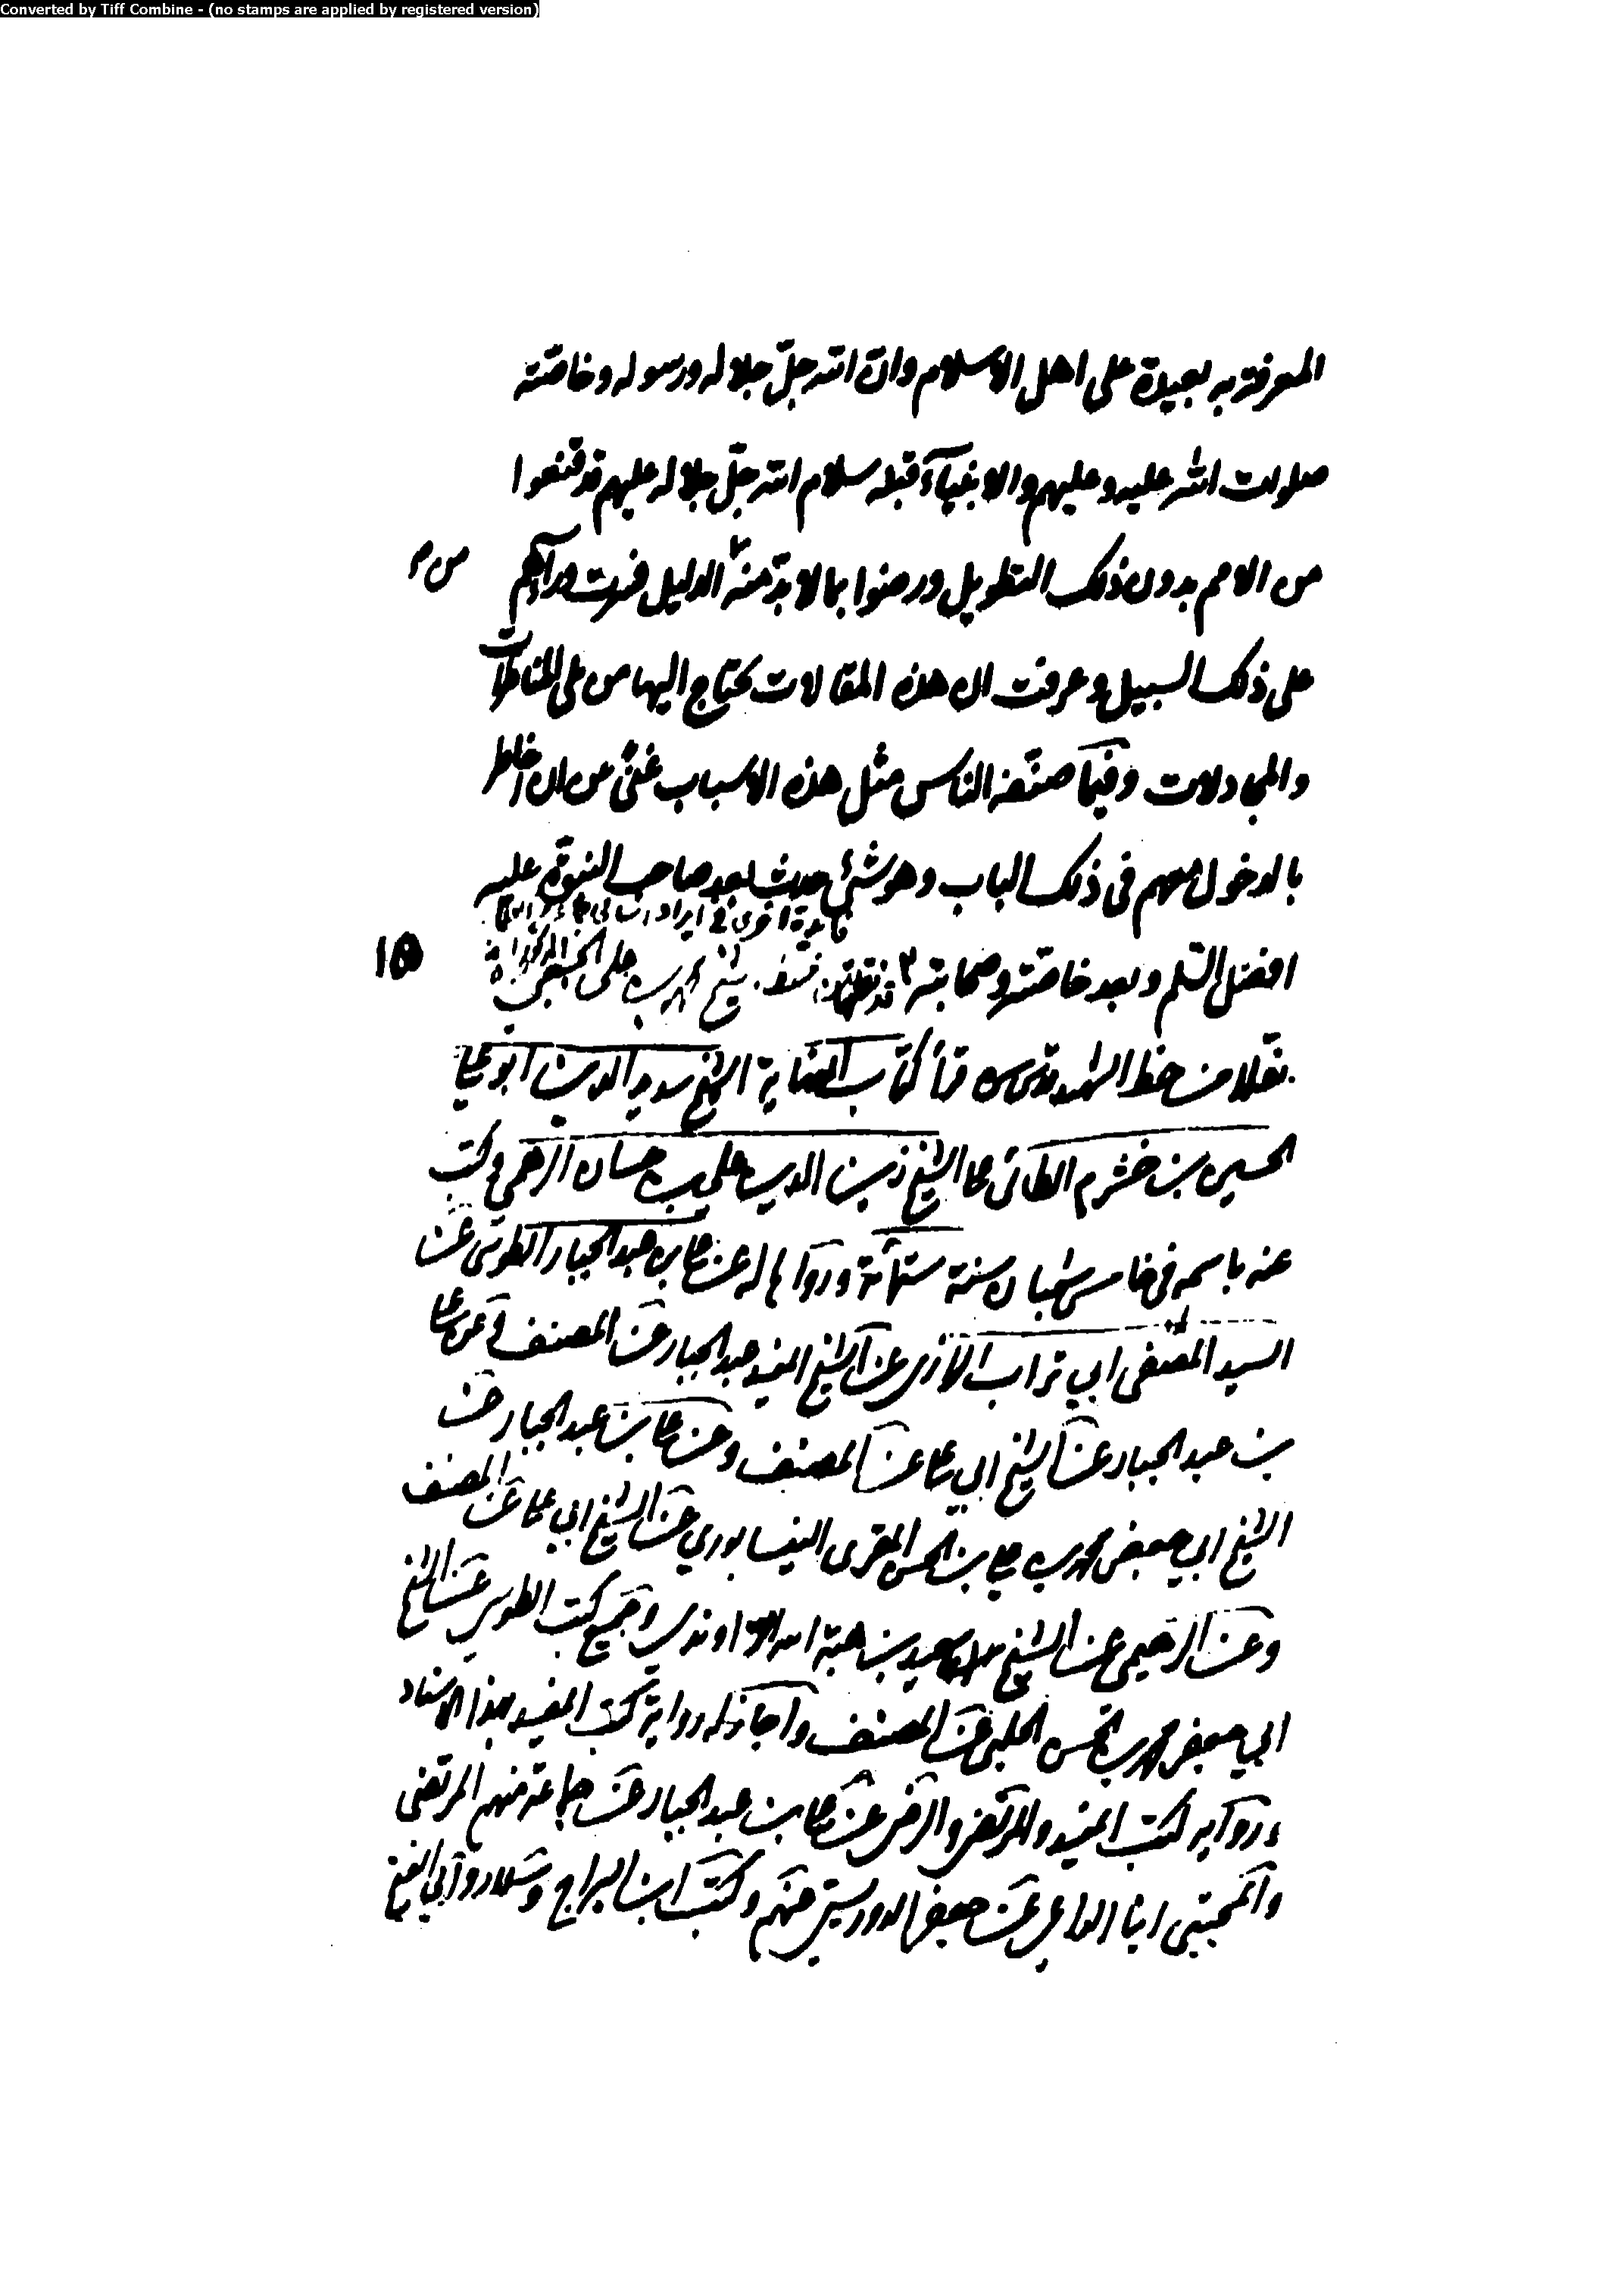 Converted by Tiff Combine - (no stamps are applied by registered version)
المعرفة به بعيدة على اهل الاسلام وان الله جلّ جلاله ورسوله وخاصته
صلوات الله عليه وعليهم والانبيآء قبله سلام الله جلّ جلاله عليهم قد قنعوا
من الامم بدون ذلك التطويل ورضوا بما لا بدّ منه الدليل فسرت ورآهم
من م
على ذلك السبيل وعرفت ان هذه المقالات يحتاج اليها من يلى المناظرات
والمجادلات وفيما صنّفه الناس مثل هذه الاسباب غنى عن ان اخاطر
بالدخول معهم فى ذلك الباب وهو شئ حدث بعد صاحب النبوة عليه
فايدة اخرى فى ايراد
افضل السلم وبعد خاصته وصحابته
شيخ محمد بن على الجبعى
١٥
نقلا من خط الشهيد قدس سره قرأ كتاب الشيخ سديد الدين ابو على
الحسين بن خشرم الطائى على الشيخ زين الدين على بن حسان الرهمى وكتب
عنه باسمه فى خامس شعبان سنة ستمائة ورواها له عن على بن عبد الجبار الطوسى عن
السيد المصفى ابي تراب الرازى عن الشيخ المفيد عبد الجبار عن المصنف وعن على
بن عبد الجبار عن الشيخ ابي على عن المصنف وعن على بن عبد الجبار عن
الشيخ ابي جعفر محمد بن على بن الحسن المقرى النيسابوري عن الشيخ ابي على عن المصنف
وعن الرهمي عن الشيخ سعيد بن هبة الله الراوندى وجميع كتب الطوسى عن الشيخ
ابي جعفر محمد بن الحسن الحلبى عن المصنف واجاز له رواية كتب المفيد بهذا الاسناد
وروايه كتب المفيد والمرتضى والرضى عن على بن عبد الجبار عن جماعة منهم المرتضى
والمجتبى ابنا الداعى عن جعفر الدوريستى عنهم وكتب ابن البراج وسلار وابي الفتح